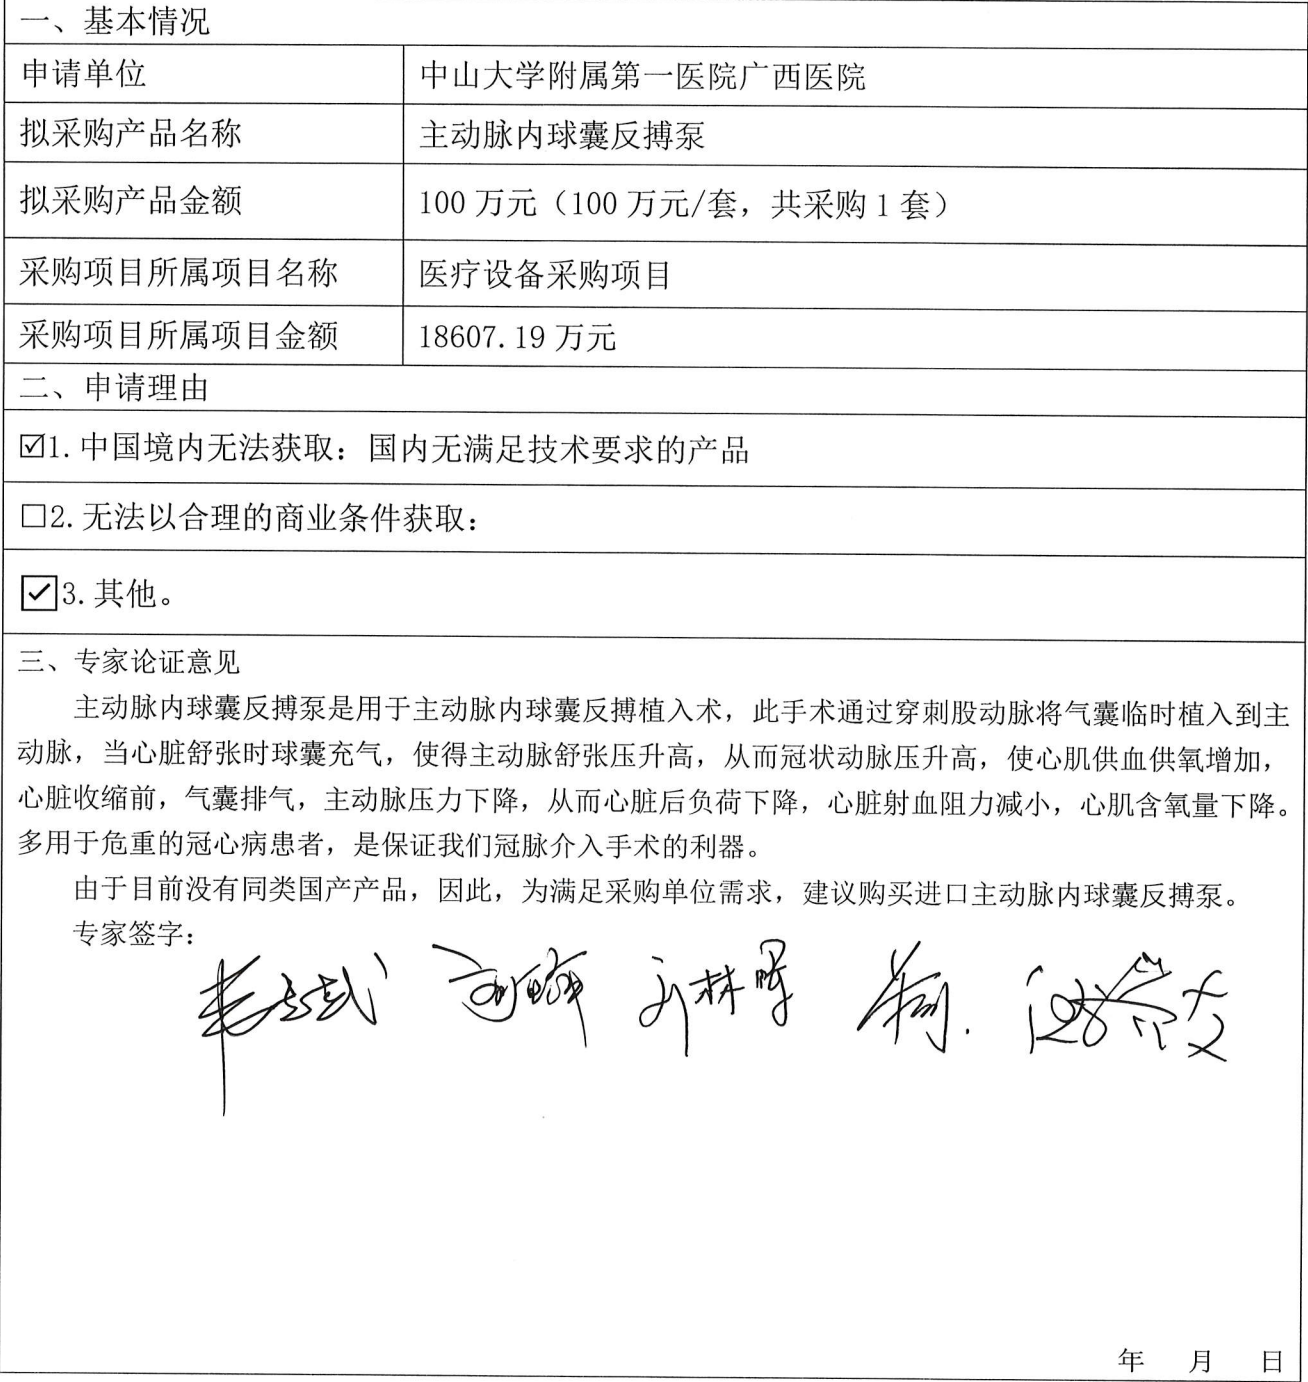 一、基本情况
申请单位 中山大学附属第一医院广西医院
拟采购产品名称 主动脉内球囊反搏泵
拟采购产品金额 100万元（100万元/套，共采购1套）
采购项目所属项目名称 医疗设备采购项目
采购项目所属项目金额 18607.19万元
二、申请理由
☑1.中国境内无法获取：国内无满足技术要求的产品
☐2.无法以合理的商业条件获取：
☑3.其他。
三、专家论证意见
主动脉内球囊反搏泵是用于主动脉内球囊反搏植入术，此手术通过穿刺股动脉将气囊临时植入到主
动脉，当心脏舒张时球囊充气，使得主动脉舒张压升高，从而冠状动脉压升高，使心肌供血供氧增加，
心脏收缩前，气囊排气，主动脉压力下降，从而心脏后负荷下降，心脏射血阻力减小，心肌含氧量下降。
多用于危重的冠心病患者，是保证我们冠脉介入手术的利器。
由于目前没有同类国产产品，因此，为满足采购单位需求，建议购买进口主动脉内球囊反搏泵。
专家签字：
年 月 日